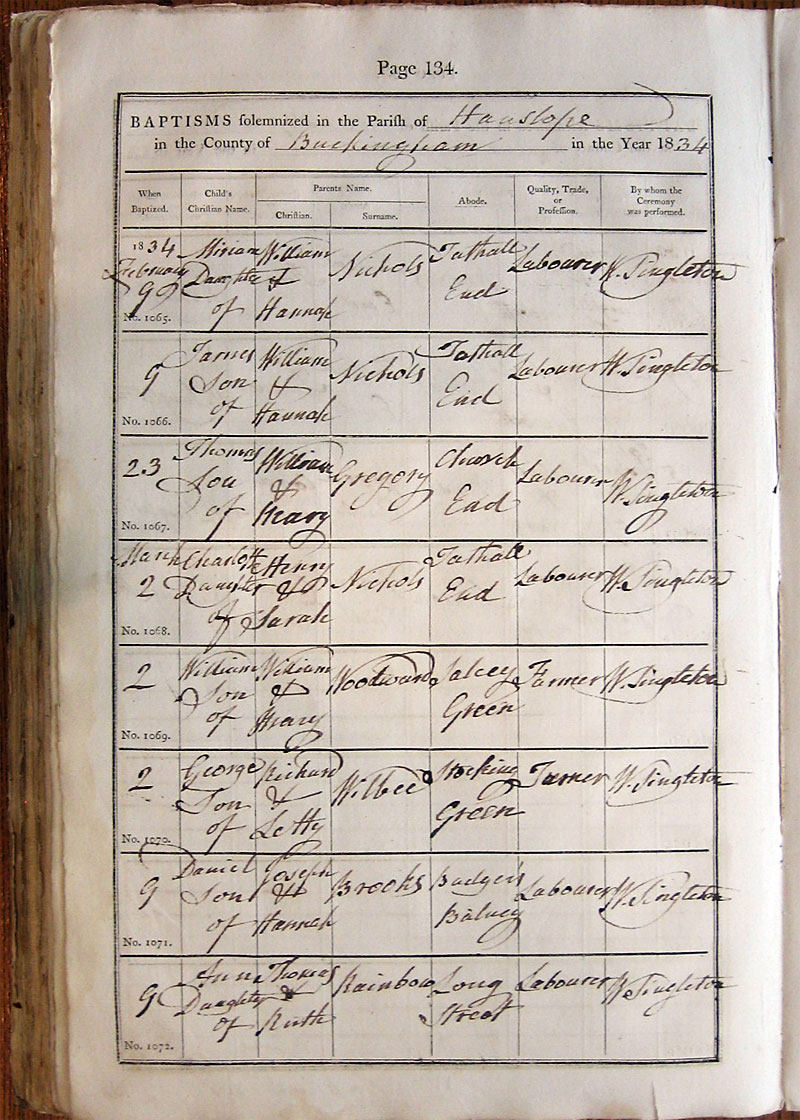 Page 134.
BAPTISMS solemnized in the Parish of Hanslope
in the County of Buckingham in the Year 1834
When Baptized. Child's Christian Name. Parents Name. Christian. Surname. Abode. Quality, Trade, or Profession. By whom the Ceremony was performed.
1834 Miriam William Nichols Tathall Labourer W. Singleton
February Daughter & End
9 of Hannah
No. 1065.
James William Nichols Tathall Labourer W. Singleton
9 Son & End
of Hannah
No. 1066.
23 Thomas William Gregory Church Labourer W. Singleton
Son & End
of Mary
No. 1067.
March Charlotte Henry Nichols Tathall Labourer W. Singleton
2 Daughter & End
of Sarah
No. 1068.
2 William William Woodward Salcey Farmer W. Singleton
Son & Green
of Mary
No. 1069.
2 George Richard Wilbee Stocking Turner W. Singleton
Son & Green
of Letty
No. 1070.
Daniel Joseph Brooks Badger's Labourer W. Singleton
9 Son &
of Hannah
No. 1071.
9 Ann Thomas Rainbow Long Labourer W. Singleton
Daughter & Street
of Ruth
No. 1072.